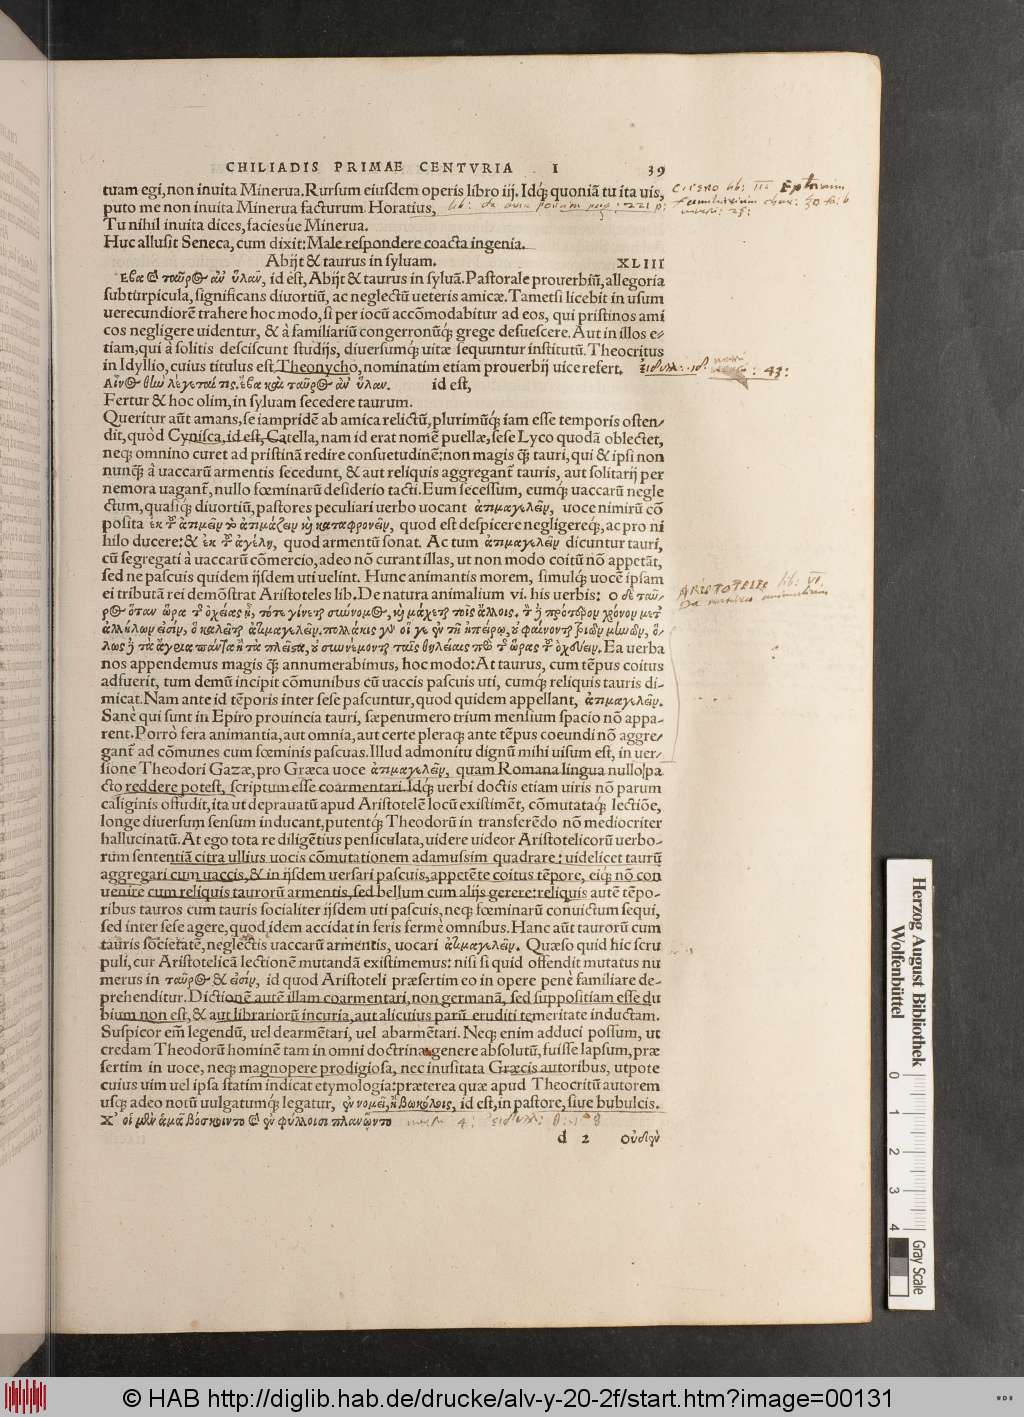 CHILIADIS PRIMAE CENTVRIA I 39
tuam egi, non inuita Minerua. Rursum eiusdem operis libro iij. Idq́ꝫ quoniã tu ita uis,
puto me non inuita Minerua facturum. Horatius,
Tu nihil inuita dices, faciesúe Minerua.
Huc allusit Seneca, cum dixit: Male respondere coacta ingenia.
Abijt & taurus in syluam. XLIII
Εβα ϗ ταῦρος ἀν' ὕλαν, id est, Abijt & taurus in syluã. Pastorale prouerbiũ, allegoria
subturpicula, significans diuortiũ, ac neglectũ ueteris amicæ. Tametsi licebit in usum
uerecundiorẽ trahere hoc modo, si per iocũ accõmodabitur ad eos, qui pristinos ami
cos negligere uidentur, & à familiariũ congerronũq́ꝫ grege desuescere. Aut in illos e-
tiam, qui à solitis desciscunt studijs, diuersumq́ꝫ uitæ sequuntur institutũ. Theocritus
in Idyllio, cuius titulus est Theonycho, nominatim etiam prouerbij uice refert.
Αἶνος θὴν λέγεταί τις, ἔβα καὶ ταῦρος ἀν' ὕλαν. id est,
Fertur & hoc olim, in syluam secedere taurum.
Queritur aũt amans, se iampridẽ ab amica relictũ, plurimũq́ꝫ iam esse temporis osten-
dit, quòd Cynisca, id est, Catella, nam id erat nomẽ puellæ, sese Lyco quodã oblectet,
neqꝫ omnino curet ad pristinã redire consuetudinẽ: non magis q̃ꝫ tauri, qui & ipsi non
nunq̃ꝫ à uaccarũ armentis secedunt, & aut reliquis aggregant̃ tauris, aut solitarij per
nemora uagant̃, nullo fœminarũ desiderio tacti. Eum secessum, eumq́ꝫ uaccarũ negle
ctum, quasiq́ꝫ diuortiũ, pastores peculiari uerbo uocant ἀτιμαγελεῖν, uoce nimirũ cõ
posita ἐκ τ͂ ἀτιμεῖν τὸ ἀτιμάζειν ϗ καταφρονεῖν, quod est despicere negligereq́ꝫ, ac pro ni
hilo ducere: & ἐκ τ͂ ἀγέλη, quod armentũ sonat. Ac tum ἀτιμαγελεῖν dicuntur tauri,
cũ segregati à uaccarũ cõmercio, adeo nõ curant illas, ut non modo coitũ nõ appetãt,
sed ne pascuis quidem ijsdem uti uelint. Hunc animantis morem, simulq́ꝫ uocẽ ipsam
ei tributã rei demõstrat Aristoteles lib. De natura animalium vi. his uerbis: ο δὲ ταῦ-
ρος ὅταν ὥρα τ͂ ὀχείας ᾖ, τότε γίνεται σύννομος, ϗ μάχεται τοῖς ἄλλοις. τ̀ ϳ̀ πρότερον χρόνον μετ'
ἀλλήλων εἰσὶν, ὃ καλεῖται ἀτιμαγελεῖν. πολλάκις γὰρ οἵ γε ἐν τῇ ἠπείρῳ, οὐ φαίνονται τριῶν μηνῶν, ὅ-
λως ϳ̀ τὰ ἄγρια πάντα ἢ τὰ πλεῖστα, οὐ συννέμονται ταῖς θηλείαις πρὸ τ͂ ὥρας τ͂ ὀχεύειν. Ea uerba
nos appendemus magis q̃ꝫ annumerabimus, hoc modo: At taurus, cum tẽpus coitus
adfuerit, tum demũ incipit cõmunibus cũ uaccis pascuis uti, cumq́ꝫ reliquis tauris di-
micat. Nam ante id tẽporis inter sese pascuntur, quod quidem appellant, ἀτιμαγελεῖν.
Sanè qui sunt in Epiro prouincia tauri, sæpenumero trium mensium spacio nõ appa-
rent. Porrò fera animantia, aut omnia, aut certe pleraqꝫ ante tẽpus coeundi nõ aggre-
gant̃ ad cõmunes cum fœminis pascuas. Illud admonitu dignũ mihi uisum est, in uer-
sione Theodori Gazæ, pro Græca uoce ἀτιμαγελεῖν, quam Romana lingua nullo pa
cto reddere potest, scriptum esse coarmentari. Idq́ꝫ uerbi doctis etiam uiris nõ parum
caliginis offudit, ita ut deprauatũ apud Aristotelẽ locũ existimẽt, cõmutataq́ꝫ lectiõe,
longe diuersum sensum inducant, putentq́ꝫ Theodorũ in transferẽdo nõ mediocriter
hallucinatũ. At ego tota re diligẽtius pensiculata, uidere uideor Aristotelicorũ uerbo-
rum sententiã citra ullius uocis cõmutationem adamussim quadrare: uidelicet taurũ
aggregari cum uaccis, & in ijsdem uersari pascuis, appetẽte coitus tẽpore, eiq́ꝫ nõ con
uenire cum reliquis taurorũ armentis, sed bellum cum alijs gerere: reliquis autẽ tẽpo-
ribus tauros cum tauris socialiter ijsdem uti pascuis, neqꝫ fœminarũ conuictum sequi,
sed inter sese agere, quod idem accidat in feris fermè omnibus. Hanc aũt taurorũ cum
tauris societatẽ, neglectis uaccarũ armentis, uocari ἀτιμαγελεῖν. Quæso quid hic scru
puli, cur Aristotelicã lectionẽ mutandã existimemus: nisi si quid offendit mutatus nu
merus in ταῦρος & εἰσίν, id quod Aristoteli præsertim eo in opere penè familiare de-
prehenditur. Dictionẽ autẽ illam coarmentari, non germanã, sed supposititiam esse du
bium non est, & aut librariorũ incuria, aut alicuius parũ eruditi temeritate inductam.
Suspicor em̃ legendũ, uel dearmẽtari, uel abarmẽtari. Neqꝫ enim adduci possum, ut
credam Theodorũ hominẽ tam in omni doctrinæ genere absolutũ, fuisse lapsum, præ
sertim in uoce, neqꝫ magnopere prodigiosa, nec inusitata Græcis autoribus, utpote
cuius uim uel ipsa statim indicat etymologia: præterea quæ apud Theocritũ autorem
usqꝫ adeo notũ uulgatumq́ꝫ legatur, ἐν νομεῖ, ἢ βωκόλοις, id est, in pastore, siue bubulcis.
Χ' οἱ μὲν ἁμᾶ βόσκοιντο ϗ ἐν φύλλοισι πλανῶντο
d 2 Οὐδὲν
CICERO lib: III Epistolarum
familiarium
ARISTOTELES lib: VI.
De natura animalium
Herzog August Bibliothek
Wolfenbüttel
0 1 2 3 4
Gray Scale
© HAB http://diglib.hab.de/drucke/alv-y-20-2f/start.htm?image=00131